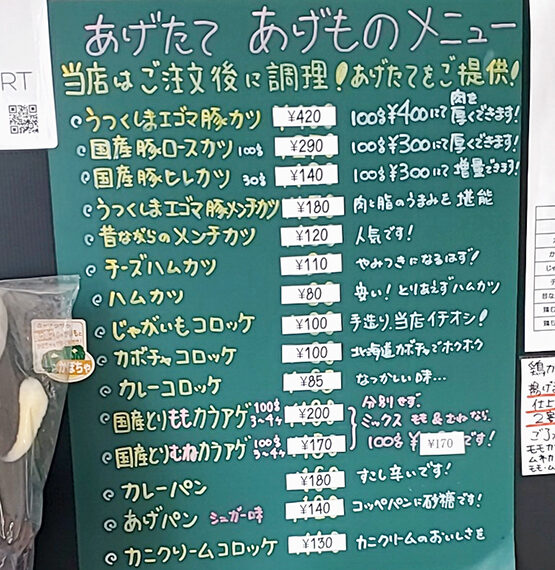 あげたて あげものメニュー
当店はご注文後に調理!あげたてをご提供!
うつくしまエゴマ豚カツ ¥420 100g¥400にて肉を厚くできます!
国産豚ロースカツ 100g ¥290 100g¥300にて厚くできます!
国産豚ヒレカツ 30g ¥140 100g¥300にて増量できます!
うつくしまエゴマ豚メンチカツ ¥180 肉と脂のうまみを堪能
昔ながらのメンチカツ ¥120 人気です!
チーズハムカツ ¥110 やみつきになるはず!
ハムカツ ¥80 安い!とりあえずハムカツ
じゃがいもコロッケ ¥100 手造り、当店イチオシ!
カボチャコロッケ ¥100 北海道カボチャでホクホク
カレーコロッケ ¥85 なつかしい味…
国産とりももカラアゲ 100g 3~4ヶ ¥200 分別せず、
ミックス もも&むねなら、
国産とりむねカラアゲ 100g 3~4ヶ ¥170 100g¥ ¥170 です!
カレーパン ¥180 すこし辛いです!
あげパン シュガー味 ¥140 コッペパンに砂糖です!
カニクリームコロッケ ¥130 カニクリームのおいしさを
RT
かぼちゃ
鶏カ
揚げ
仕上
2実
ご
モモカ
ムネカ
モモ・ム